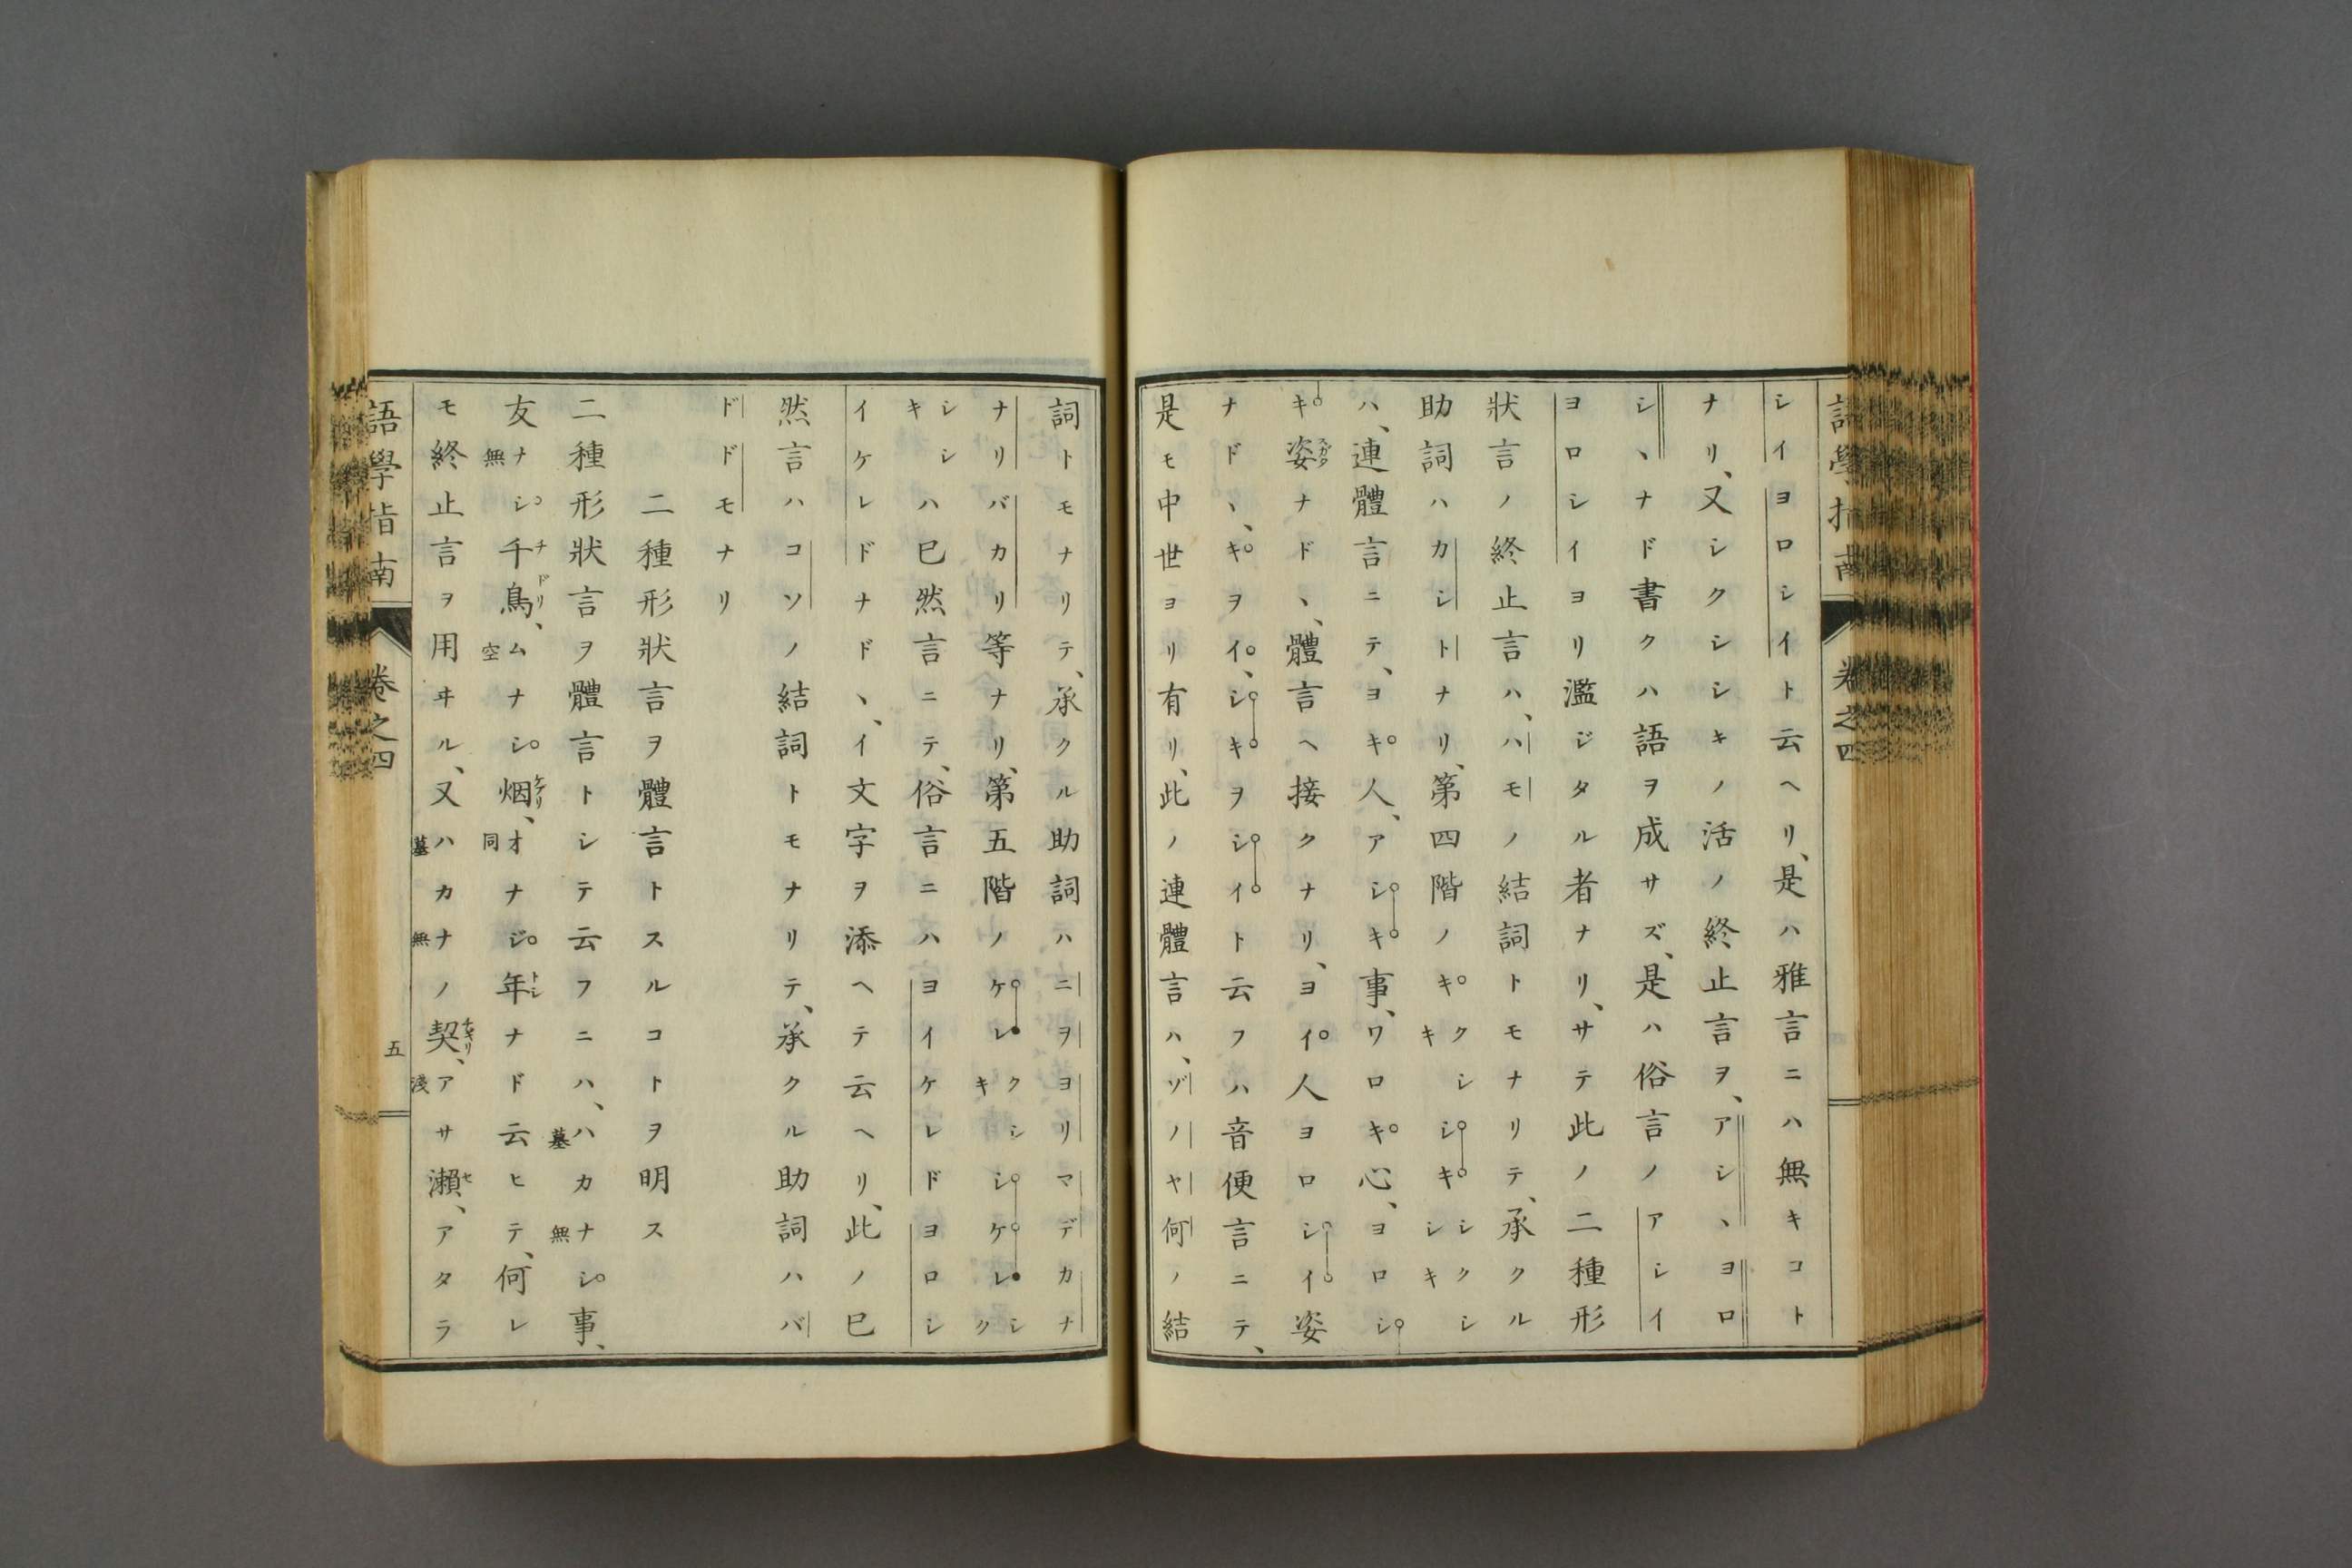 シイヨロシイト云ヘリ、是ハ雅言ニハ無キコト
ナリ、又シクシシキノ活ノ終止言ヲ、アシヽヨロ
シヽナド書クハ語ヲ成サズ、是ハ俗言ノアシイ
ヨロシイヨリ濫ジタル者ナリ、サテ此ノ二種形
狀言ノ終止言ハ、ハモノ結詞トモナリテ、承クル
助詞ハカシトナリ、第四階ノキクキシシキシクシシキ
ハ、連體言ニテ、ヨキ人、アシキ事、ワロキ心、ヨロシ
キ姿スガタナドヽ、體言ヘ接クナリ、ヨイ人ヨロシイ姿
ナドヽ、キヲイ、シキヲシイト云フハ音便言ニテ、
是モ中世ヨリ有リ、此ノ連體言ハ、ゾノヤ何ノ結
詞トモナリテ、承クル助詞ハニヲヨリマデカナ
ナリバカリ等ナリ、第五階ノケレクシキシケレシク
シシキハ已然言ニテ、俗言ニハヨイケレドヨロシ
イケレドナドヽ、イ文字ヲ添ヘテ云ヘリ、此ノ已
然言ハコソノ結詞トモナリテ、承クル助詞ハバ
ドドモナリ
二種形狀言ヲ體言トスルコトヲ明ス
二種形狀言ヲ體言トシテ云フニハ、ハカ墓ナシ無事、
友ナシ無千鳥チドリ、ムナシ空烟ケブリ、オナジ同年トシナド云ヒテ、何レ
モ終止言ヲ用ヰル、又ハカ墓ナ無ノ契チギリ、アサ淺瀨セ、アタラ
語學指南
卷之四
五